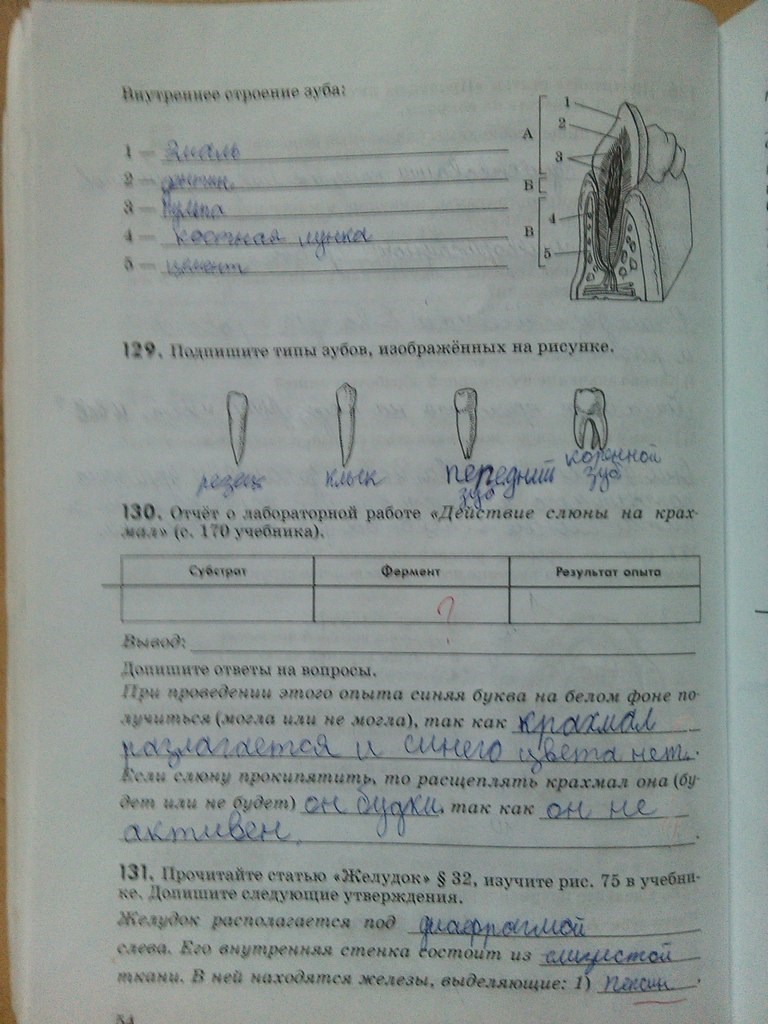 Внутреннее строение зуба:
1 — эмаль
2 — дентин
3 — пульпа
4 — костная лунка
5 — цемент
А
Б
В
1
2
3
4
5
129. Подпишите типы зубов, изображённых на рисунке.
резец клык передний зуб коренной зуб
130. Отчёт о лабораторной работе «Действие слюны на крах-
мал» (с. 170 учебника).
Субстрат Фермент Результат опыта
?
Вывод:
Допишите ответы на вопросы.
При проведении этого опыта синяя буква на белом фоне по-
лучиться (могла или не могла), так как крахмал
разлагается и синего цвета нет.
Если слюну прокипятить, то расщеплять крахмал она (бу-
дет или не будет) он, так как он не
активен.
131. Прочитайте статью «Желудок» § 32, изучите рис. 75 в учебни-
ке. Допишите следующие утверждения.
Желудок располагается под диафрагмой
слева. Его внутренняя стенка состоит из слизистой
ткани. В ней находятся железы, выделяющие: 1) пепсин.
54